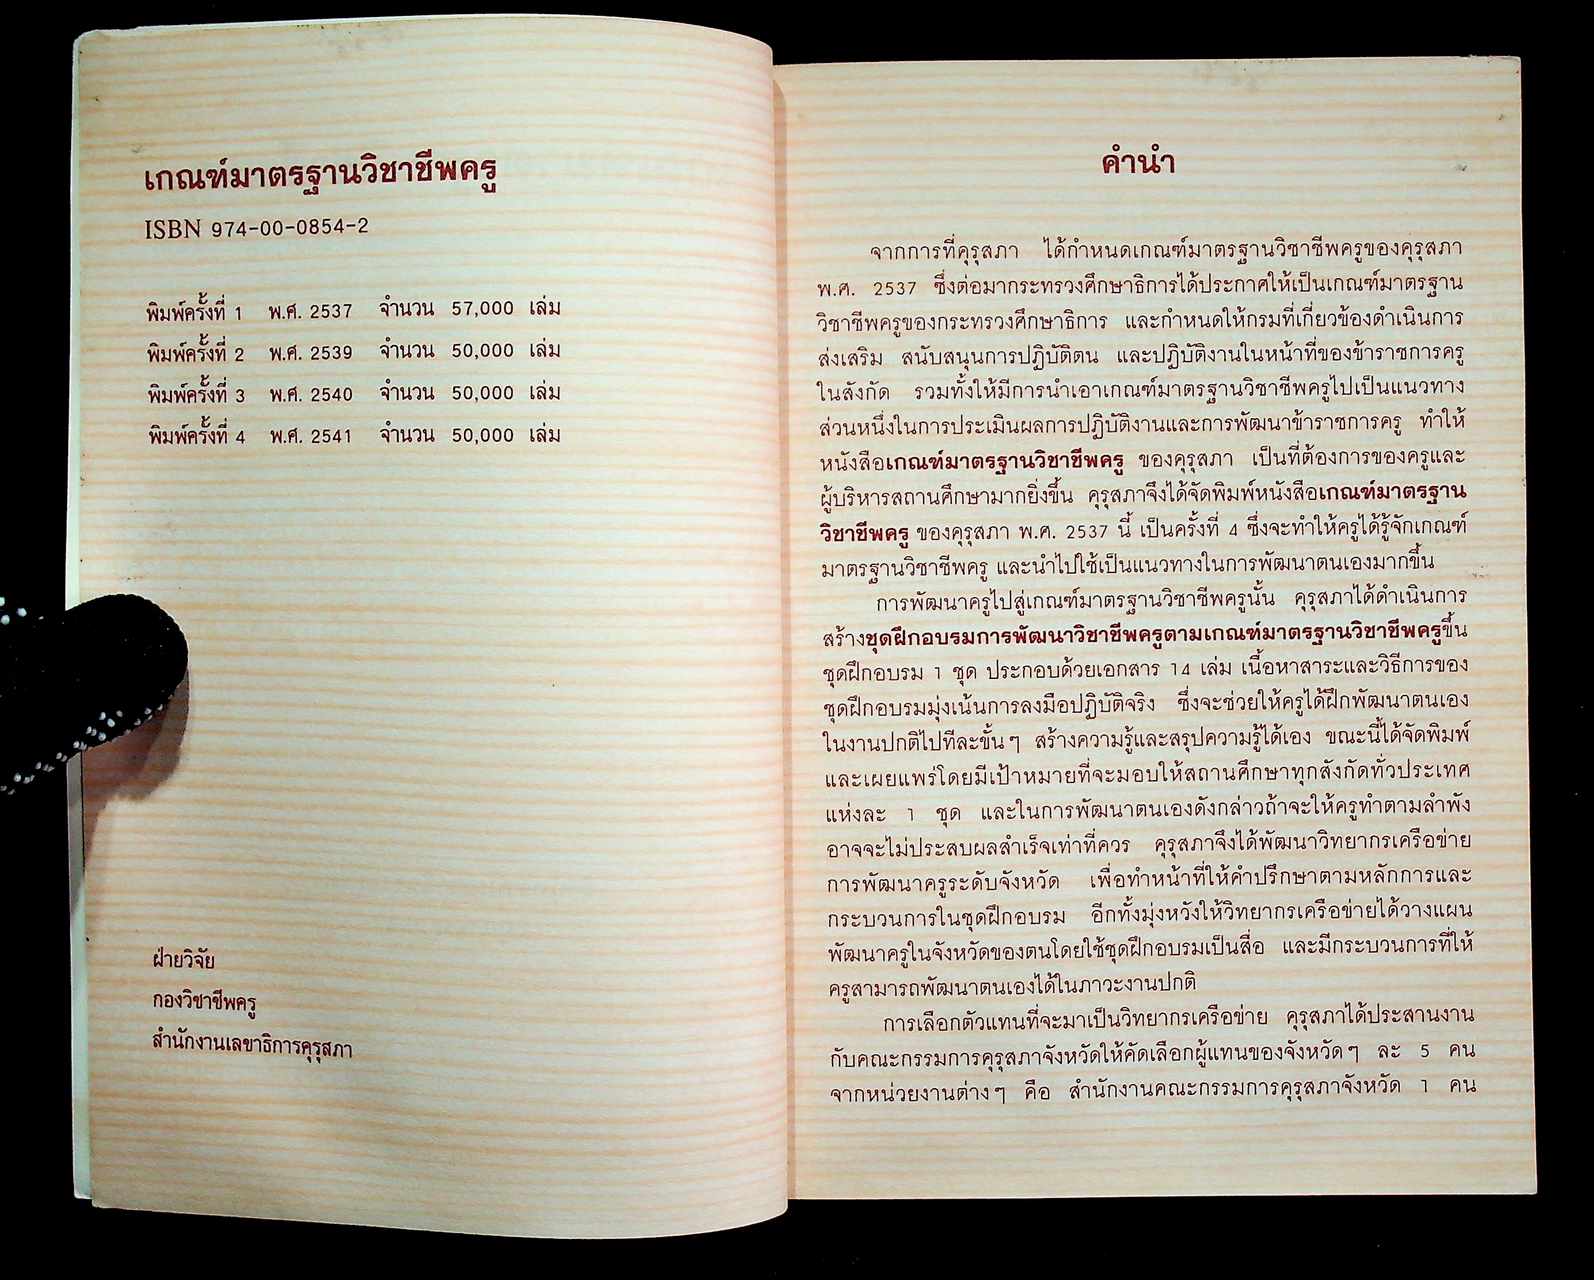 เกณฑ์มาตรฐานวิชาชีพครู
ISBN 974-00-0854-2
พิมพ์ครั้งที่ 1 พ.ศ. 2537 จำนวน 57,000 เล่ม
พิมพ์ครั้งที่ 2 พ.ศ. 2539 จำนวน 50,000 เล่ม
พิมพ์ครั้งที่ 3 พ.ศ. 2540 จำนวน 50,000 เล่ม
พิมพ์ครั้งที่ 4 พ.ศ. 2541 จำนวน 50,000 เล่ม
ฝ่ายวิจัย
กองวิชาชีพครู
สำนักงานเลขาธิการคุรุสภา
คำนำ
จากการที่คุรุสภา ได้กำหนดเกณฑ์มาตรฐานวิชาชีพครูของคุรุสภา
พ.ศ. 2537 ซึ่งต่อมากระทรวงศึกษาธิการได้ประกาศให้เป็นเกณฑ์มาตรฐาน
วิชาชีพครูของกระทรวงศึกษาธิการ และกำหนดให้กรมที่เกี่ยวข้องดำเนินการ
ส่งเสริม สนับสนุนการปฏิบัติตน และปฏิบัติงานในหน้าที่ของข้าราชการครู
ในสังกัด รวมทั้งให้มีการนำเอาเกณฑ์มาตรฐานวิชาชีพครูไปเป็นแนวทาง
ส่วนหนึ่งในการประเมินผลการปฏิบัติงานและการพัฒนาข้าราชการครู ทำให้
หนังสือเกณฑ์มาตรฐานวิชาชีพครู ของคุรุสภา เป็นที่ต้องการของครูและ
ผู้บริหารสถานศึกษามากยิ่งขึ้น คุรุสภาจึงได้จัดพิมพ์หนังสือเกณฑ์มาตรฐาน
วิชาชีพครู ของคุรุสภา พ.ศ. 2537 นี้ เป็นครั้งที่ 4 ซึ่งจะทำให้ครูได้รู้จักเกณฑ์
มาตรฐานวิชาชีพครู และนำไปใช้เป็นแนวทางในการพัฒนาตนเองมากขึ้น
การพัฒนาครูไปสู่เกณฑ์มาตรฐานวิชาชีพครูนั้น คุรุสภาได้ดำเนินการ
สร้างชุดฝึกอบรมการพัฒนาวิชาชีพครูตามเกณฑ์มาตรฐานวิชาชีพครูขึ้น
ชุดฝึกอบรม 1 ชุด ประกอบด้วยเอกสาร 14 เล่ม เนื้อหาสาระและวิธีการของ
ชุดฝึกอบรมมุ่งเน้นการลงมือปฏิบัติจริง ซึ่งจะช่วยให้ครูได้ฝึกพัฒนาตนเอง
ในงานปกติไปทีละขั้นๆ สร้างความรู้และสรุปความรู้ได้เอง ขณะนี้ได้จัดพิมพ์
และเผยแพร่โดยมีเป้าหมายที่จะมอบให้สถานศึกษาทุกสังกัดทั่วประเทศ
แห่งละ 1 ชุด และในการพัฒนาตนเองดังกล่าวถ้าจะให้ครูทำตามลำพัง
อาจจะไม่ประสบผลสำเร็จเท่าที่ควร คุรุสภาจึงได้พัฒนาวิทยากรเครือข่าย
การพัฒนาครูระดับจังหวัด เพื่อทำหน้าที่ให้คำปรึกษาตามหลักการและ
กระบวนการในชุดฝึกอบรม อีกทั้งมุ่งหวังให้วิทยากรเครือข่ายได้วางแผน
พัฒนาครูในจังหวัดของตนโดยใช้ชุดฝึกอบรมเป็นสื่อ และมีกระบวนการที่ให้
ครูสามารถพัฒนาตนเองได้ในภาวะงานปกติ
การเลือกตัวแทนที่จะมาเป็นวิทยากรเครือข่าย คุรุสภาได้ประสานงาน
กับคณะกรรมการคุรุสภาจังหวัดให้คัดเลือกผู้แทนของจังหวัดๆ ละ 5 คน
จากหน่วยงานต่างๆ คือ สำนักงานคณะกรรมการคุรุสภาจังหวัด 1 คน